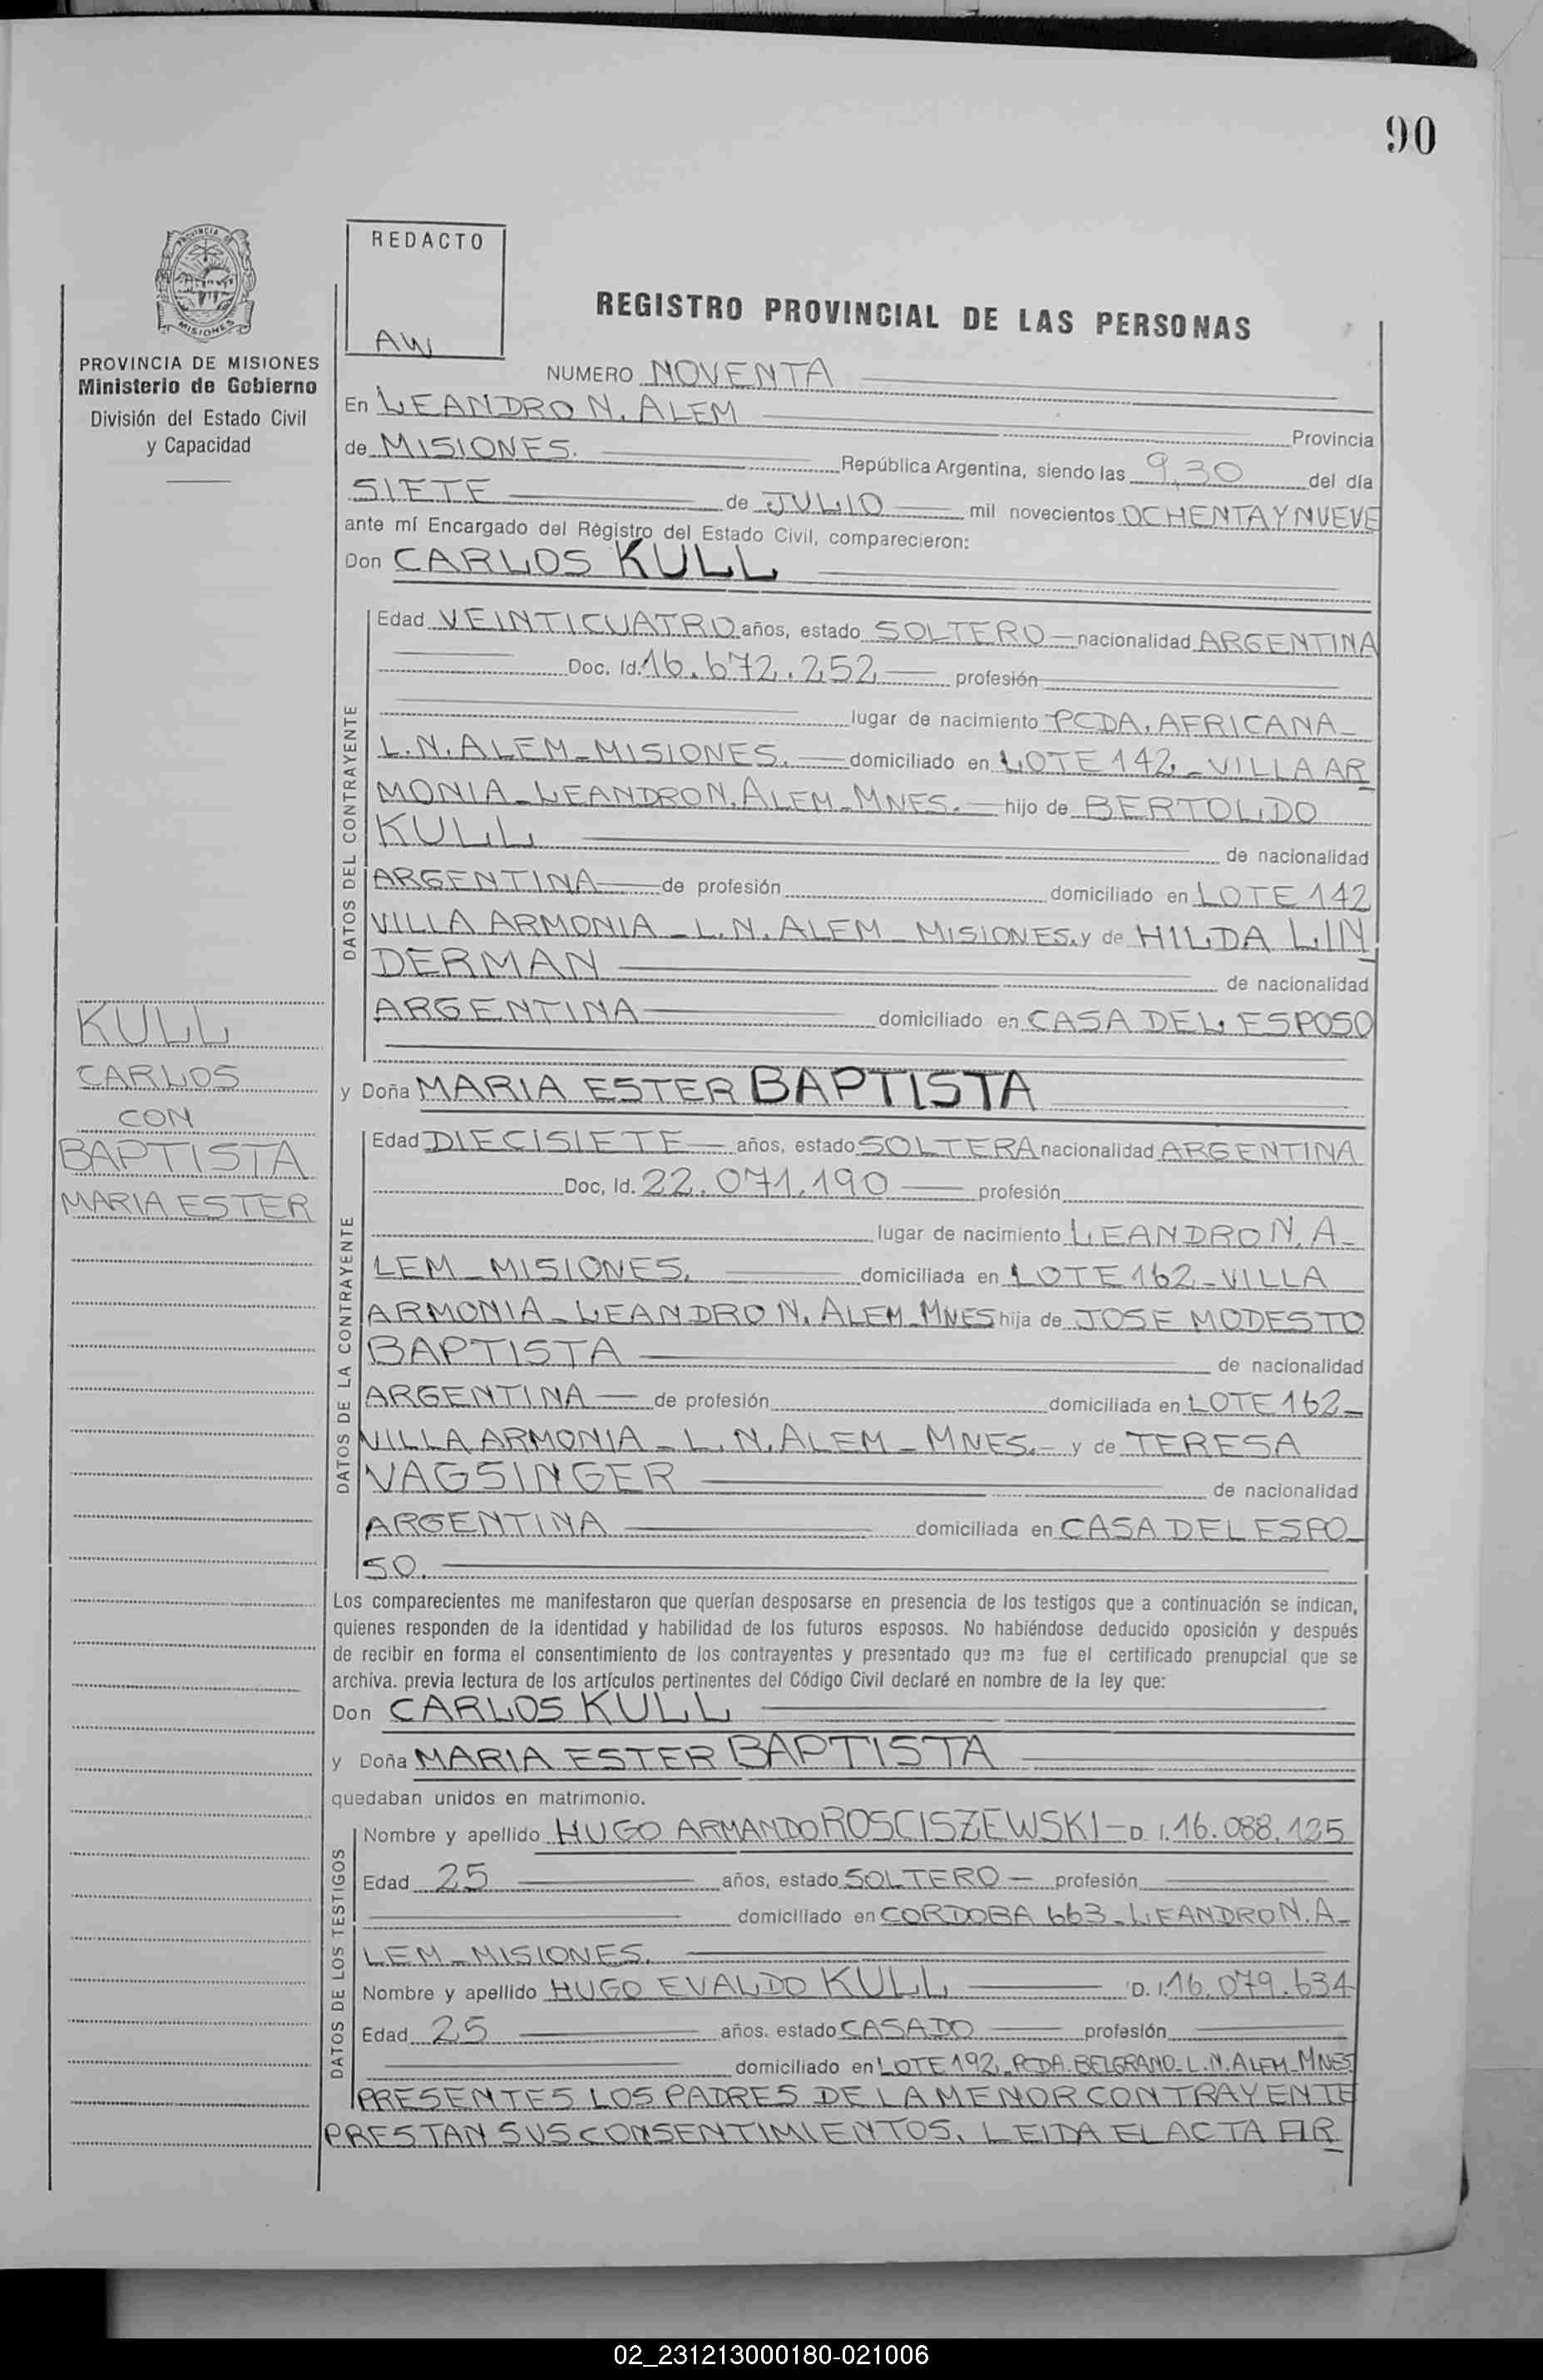 90
PROVINCIA DE
MISIONES
PROVINCIA DE MISIONES
Ministerio de Gobierno
División del Estado Civil
y Capacidad
REDACTO
AW
REGISTRO PROVINCIAL DE LAS PERSONAS
NUMERO NOVENTA
En LEANDRO N. ALEM Provincia
de MISIONES. República Argentina, siendo las 9,30 del día
SIETE de JULIO mil novecientos OCHENTA Y NUEVE
ante mí Encargado del Régistro del Estado Civil, comparecieron:
Don CARLOS KULL
DATOS DEL CONTRAYENTE
Edad VEINTICUATRO años, estado SOLTERO nacionalidad ARGENTINA
Doc. Id. 16.672.252 profesión
lugar de nacimiento PCDA. AFRICANA_
L.N.ALEM_MISIONES. domiciliado en LOTE 142._VILLA AR
MONIA_LEANDRO N. ALEM_MNES. hijo de BERTOLDO
KULL de nacionalidad
ARGENTINA de profesión domiciliado en LOTE 142
VILLA ARMONIA_L.N.ALEM_MISIONES. y de HILDA LIN
DERMAN de nacionalidad
ARGENTINA domiciliado en CASA DEL ESPOSO
y Doña MARIA ESTER BAPTISTA
KULL
CARLOS
CON
BAPTISTA
MARIA ESTER
DATOS DE LA CONTRAYENTE
Edad DIECISIETE años, estado SOLTERA nacionalidad ARGENTINA
Doc, Id. 22.071.190 profesión
lugar de nacimiento LEANDRO N. A_
LEM_MISIONES. domiciliada en LOTE 162_VILLA
ARMONIA_LEANDRO N. ALEM_MNES hija de JOSE MODESTO
BAPTISTA de nacionalidad
ARGENTINA de profesión domiciliada en LOTE 162_
VILLA ARMONIA_L.N.ALEM_MNES._ y de TERESA
VAGSINGER de nacionalidad
ARGENTINA domiciliada en CASA DEL ESPO_
SO.
Los comparecientes me manifestaron que querían desposarse en presencia de los testigos que a continuación se indican,
quienes responden de la identidad y habilidad de los futuros esposos. No habiéndose deducido oposición y después
de recibir en forma el consentimiento de los contrayentes y presentado que me fue el certificado prenupcial que se
archiva. previa lectura de los artículos pertinentes del Código Civil declaré en nombre de la ley que:
Don CARLOS KULL
y Doña MARIA ESTER BAPTISTA
quedaban unidos en matrimonio.
DATOS DE LOS TESTIGOS
Nombre y apellido HUGO ARMANDO ROSCISZEWSKI D. I. 16.088.125
Edad 25 años, estado SOLTERO profesión
domiciliado en CORDOBA 663_LEANDRO N. A_
LEM_MISIONES.
Nombre y apellido HUGO EVALDO KULL D. I. 16.079.634
Edad 25 años. estado CASADO profesión
domiciliado en LOTE 192._PCDA. BELGRANO_L.N.ALEM_MNES
PRESENTES LOS PADRES DE LA MENOR CONTRAYENTE
PRESTAN SUS CONSENTIMIENTOS. LEIDA EL ACTA FIR
02_231213000180-021006